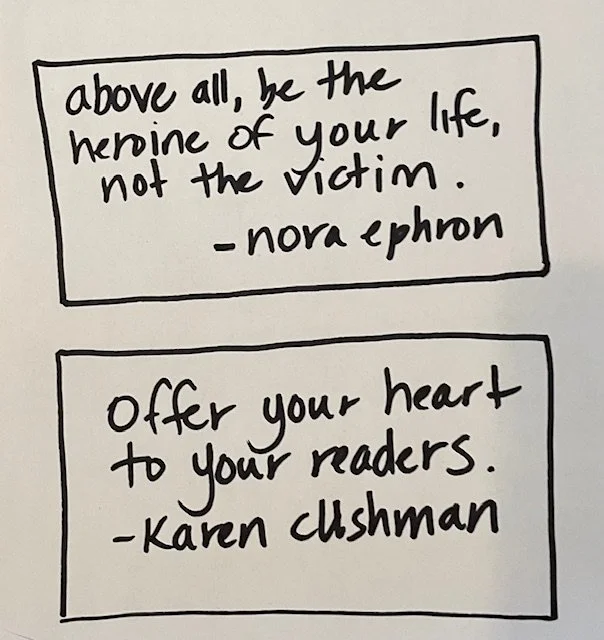 above all, be the
heroine of your life,
not the victim.
-nora ephron
Offer your heart
to your readers.
-Karen Cushman